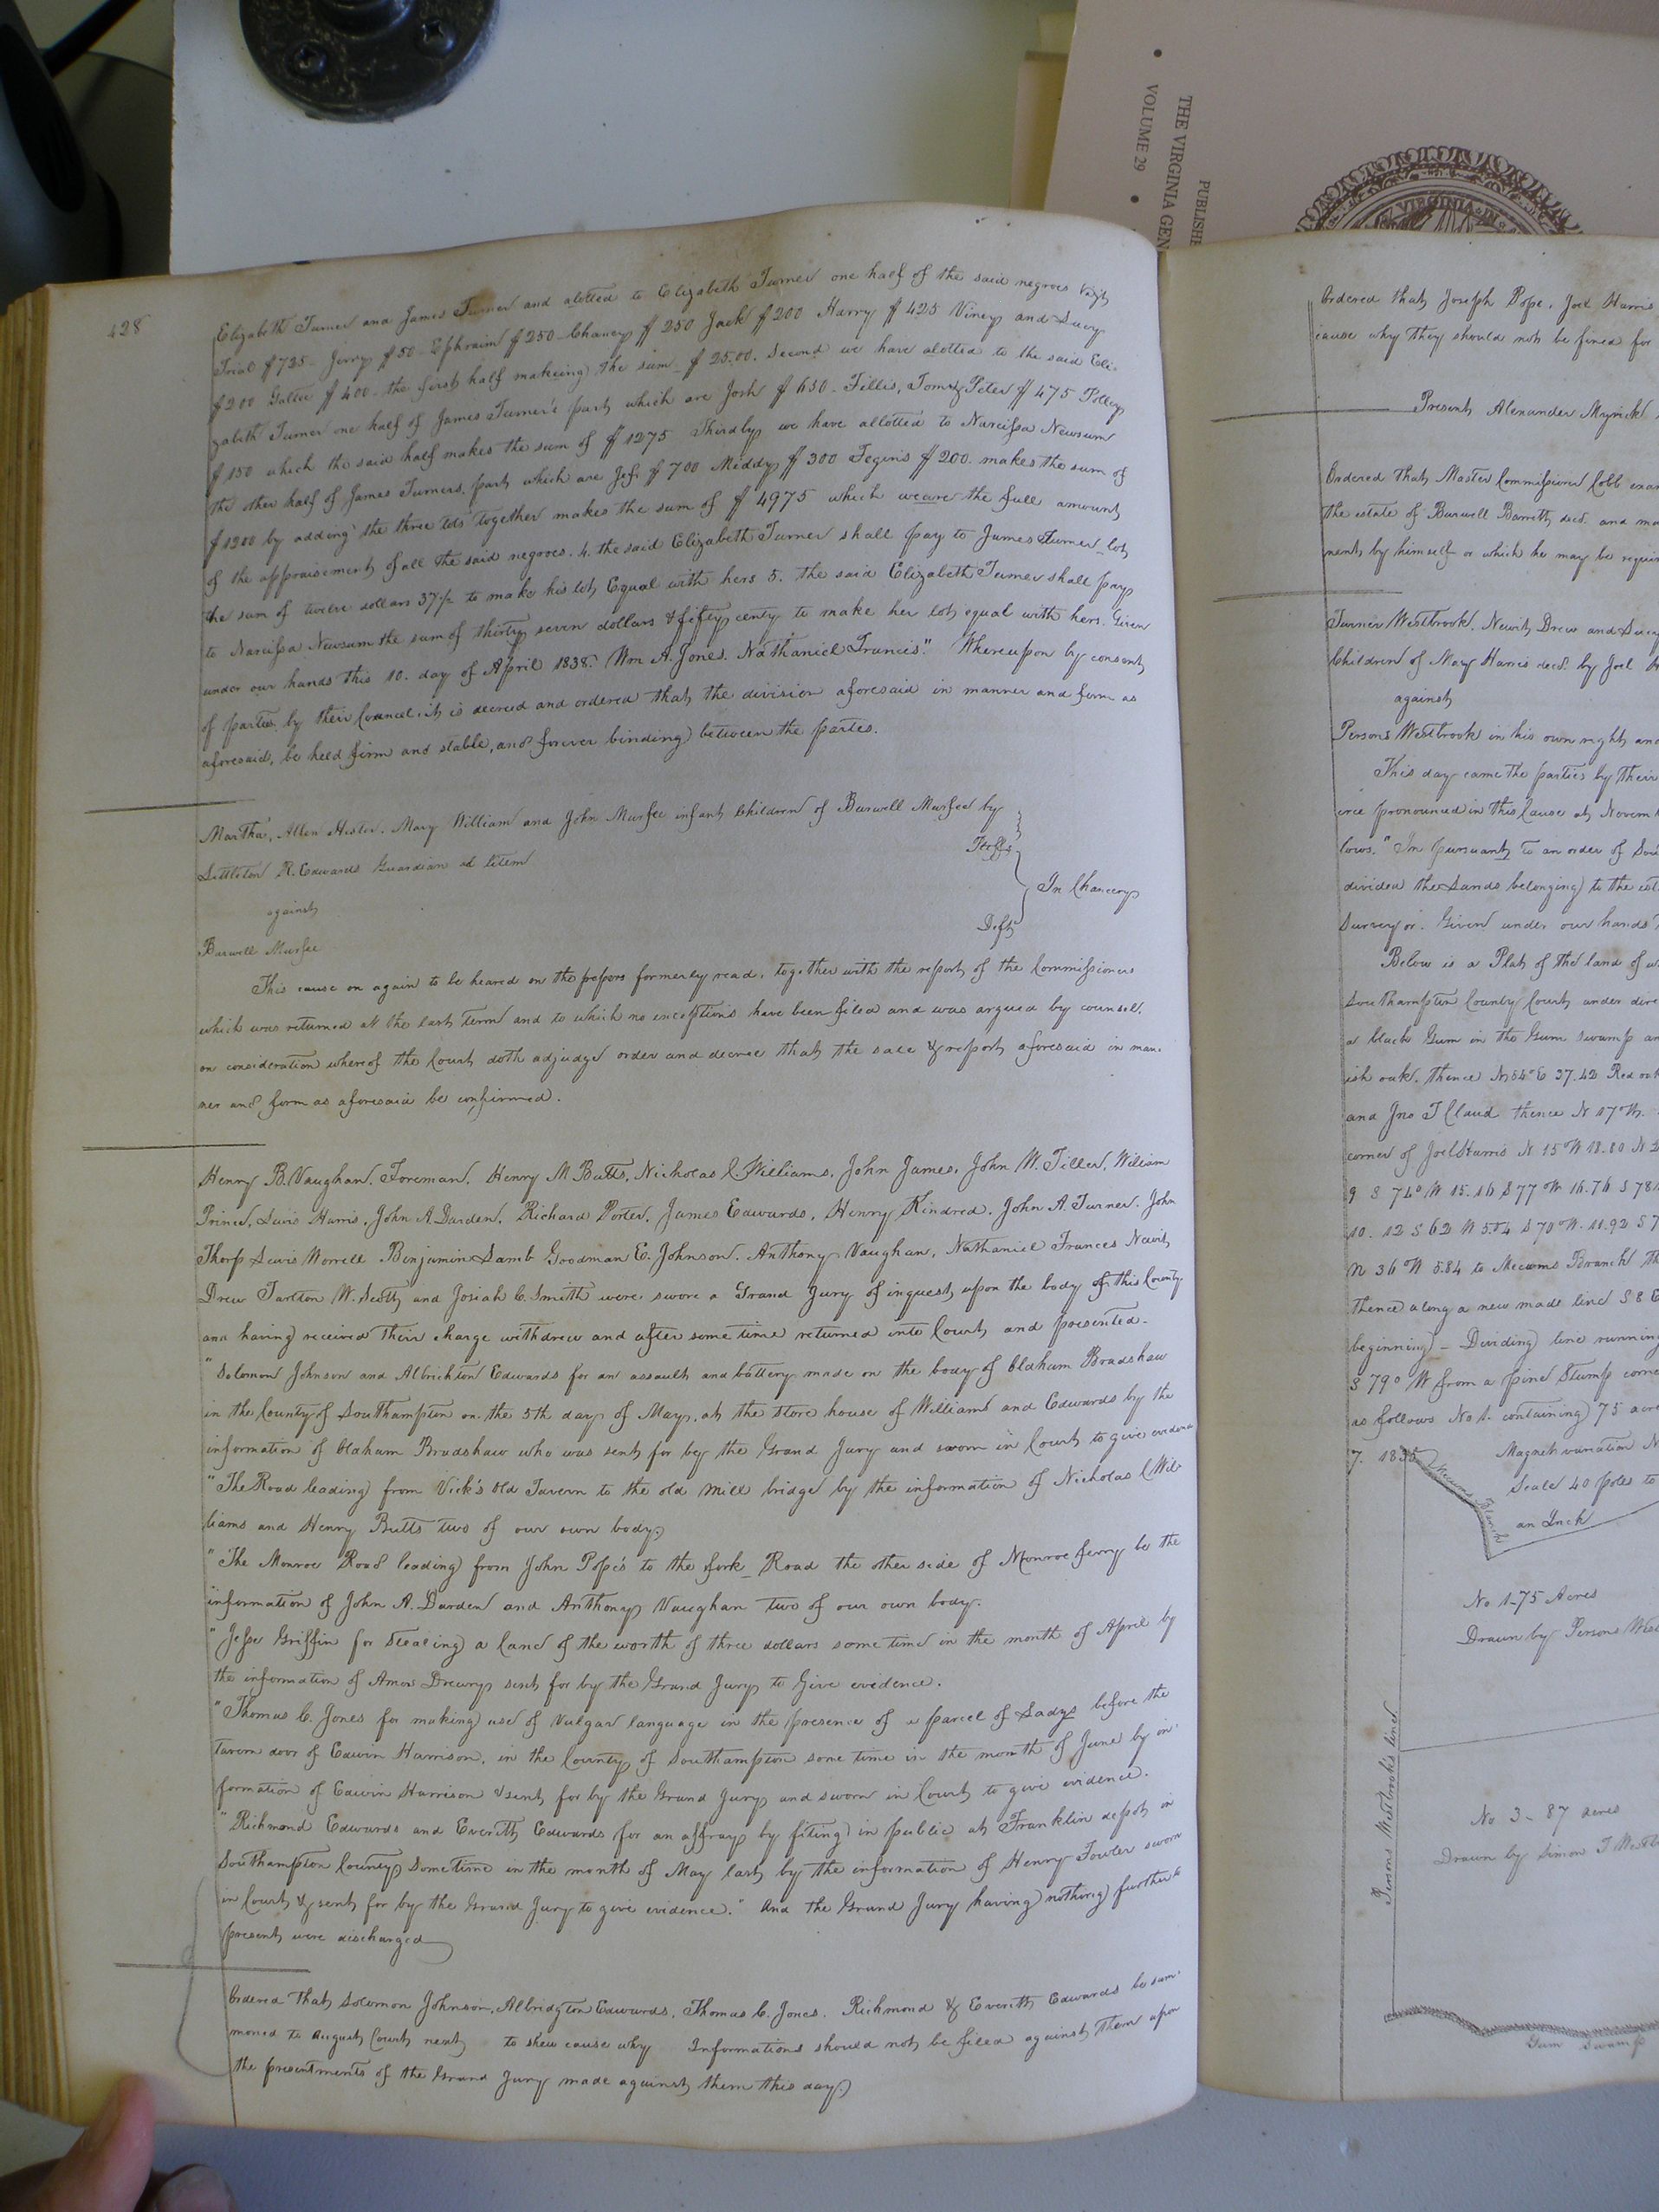 THE VIRGINIA GEN
VOLUME 29
PUBLISHE
VIRGINIA IN
428
Elizabeth Turner and James Turner and alotted to Elizabeth Turner one half of the said negroes
Trial $725 - Jerry $50 - Ephraim $250 - Chaney $250 Jack $200 Harry $425 Viney and Lucy
$200 $400 - the first half makeing the sum - $25.00. Second we have alotted to the said Eli-
zabeth Turner one half of James Turner's part which are Josh $650 - Fillis, Tom & Peter $475 Polley
$150 which the said half makes the sum of $1275 Thirdly we have allotted to Narcissa Newsum
the other half of James Turners part which are $700 Middy $300 $200. makes the sum of
$1200 by adding the three lots together makes the sum of $4975 which weave the full amount
of the appraisement of all the said negroes. 4. the said Elizabeth Turner shall pay to James Turner lot
the sum of twelve dollars 37½ to make his lot Equal with hers 5. the said Elizabeth Turner shall pay
to Narcissa Newsum the sum of thirty seven dollars & fifty centy to make her lot equal with hers. Given
under our hands this 10. day of April 1838. Wm A. Jones. Nathaniel Francis." Whereupon by consent
of parties by their Councel, it is decreed and ordered that the division aforesaid in manner and form as
aforesaid, be held firm and stable, and forever binding between the parties.
Martha, Allen Hester, Mary William and John Murfee infant Children of Burwell Murfee by
Littleton R. Edwards Guardian ad litem
Pltffs
against
In Chancery
Burwell Murfee
Deft
This cause on again to be heared on the papers formerly read, together with the report of the Commissioners
which was returned at the last term and to which no exceptions have been filed and was argued by counsel.
on consideration whereof the Court doth adjudge order and decree that the sale & report aforesaid in man-
ner and form as aforesaid be confirmed.
Henry B. Vaughan, Foreman, Henry M Butts, Nicholas C Williams, John James, John W. Tiller, William
Prince, Lewis Harris, John A. Darden, Richard Porter, James Edwards, Henry Kindred, John A. Turner, John
Thorp Lewis Worrell Benjamin Lamb Goodman E. Johnson, Anthony Vaughan, Nathaniel Frances Newit
Drew Tarlton W. Scott and Josiah C. Smith were swore a Grand Jury of inquest upon the body of this County
and having received their charge withdrew and after some time returned into Court and presented -
"Solomon Johnson and Albrichton Edwards for an assault and battery made on the body of Claham Bradshaw
in the County of Southampton on the 5th day of May, at the store house of Williams and Edwards by the
information of Claham Bradshaw who was sent for by the Grand Jury and sworn in Court to give evidence
"The Road leading from Vick's Old Tavern to the old mill bridge by the information of Nicholas C Wil-
liams and Henry Butts two of our own body.
"The Monroe Road leading from John Pope's to the fork Road the other side of Monroe ferry be the
information of John A. Darden and Anthony Vaughan two of our own body.
"Jesse Griffin for Stealing a land of the worth of three dollars some time in the month of April by
the information of Amos Drewry sent for by the Grand Jury to Give evidence.
"Thomas C. Jones for making use of Vulgar language in the presence of a parcel of Ladys before the
tavern door of Edwin Harrison, in the County of Southampton some time in the month of June by in-
formation of Edwin Harrison & sent for by the Grand Jury and sworn in Court to give evidence.
"Richmond Edwards and Everitt Edwards for an affray by fiting in public at Franklin depot in
Southampton County Sometime in the month of May last by the information of Henry Fowler sworn
in Court & sent for by the Grand Jury to give evidence." And the Grand Jury having nothing further to
present were discharged
Ordered that Solomon Johnson, Albridgton Edwards, Thomas C. Jones. Richmond & Everitt Edwards be sum-
moned to August Court next to shew cause why Informations should not be filed against them upon
the presentments of the Grand Jury made against them this day.
Ordered that Joseph Pope, Joel Harris
cause why they should not be fined for
Present Alexander Myrick
Ordered that Master Commissioner Cobb
the estate of Burwell Barrett decd. and
ment by himself or which he may be
Turner Westbrook, Newit Drew and
Children of May Harris decd. by Joel
against
Persons Westbrook in his own right and
This day came the parties by their
cree pronounced in this Cause at
lows. "In pursuant to an order of
divided the Lands belonging to the
Surveyor. Given under our hands
Below is a Plat of the land of
Southampton County Court under
a black Gum in the Gum swamp
ish oak. thence N 84° E 37.42 Red oak
and Jno T Claud thence N 17° W.
corner of Joel Harris N 15° W 18.80
9 S 74° W 15.16 S 77° W 16.76
10. 12 S 62 W 5.54 S 70° W. 11.92 S 7
N 36° W 5.84 to Mecums Branch
thence along a new made line S 8 E
beginning - Dividing line running
S 79° W from a pine Stump
as follows No 1. containing 75
7. 1835
Magnetic variation
Scale 40 poles to
an Inch
Mecums Branch
No 1-75 Acres
Drawn by Persons
Persons Westbrooks line
No 3 - 87 acres
Drawn by Simon T
Gum Swamp